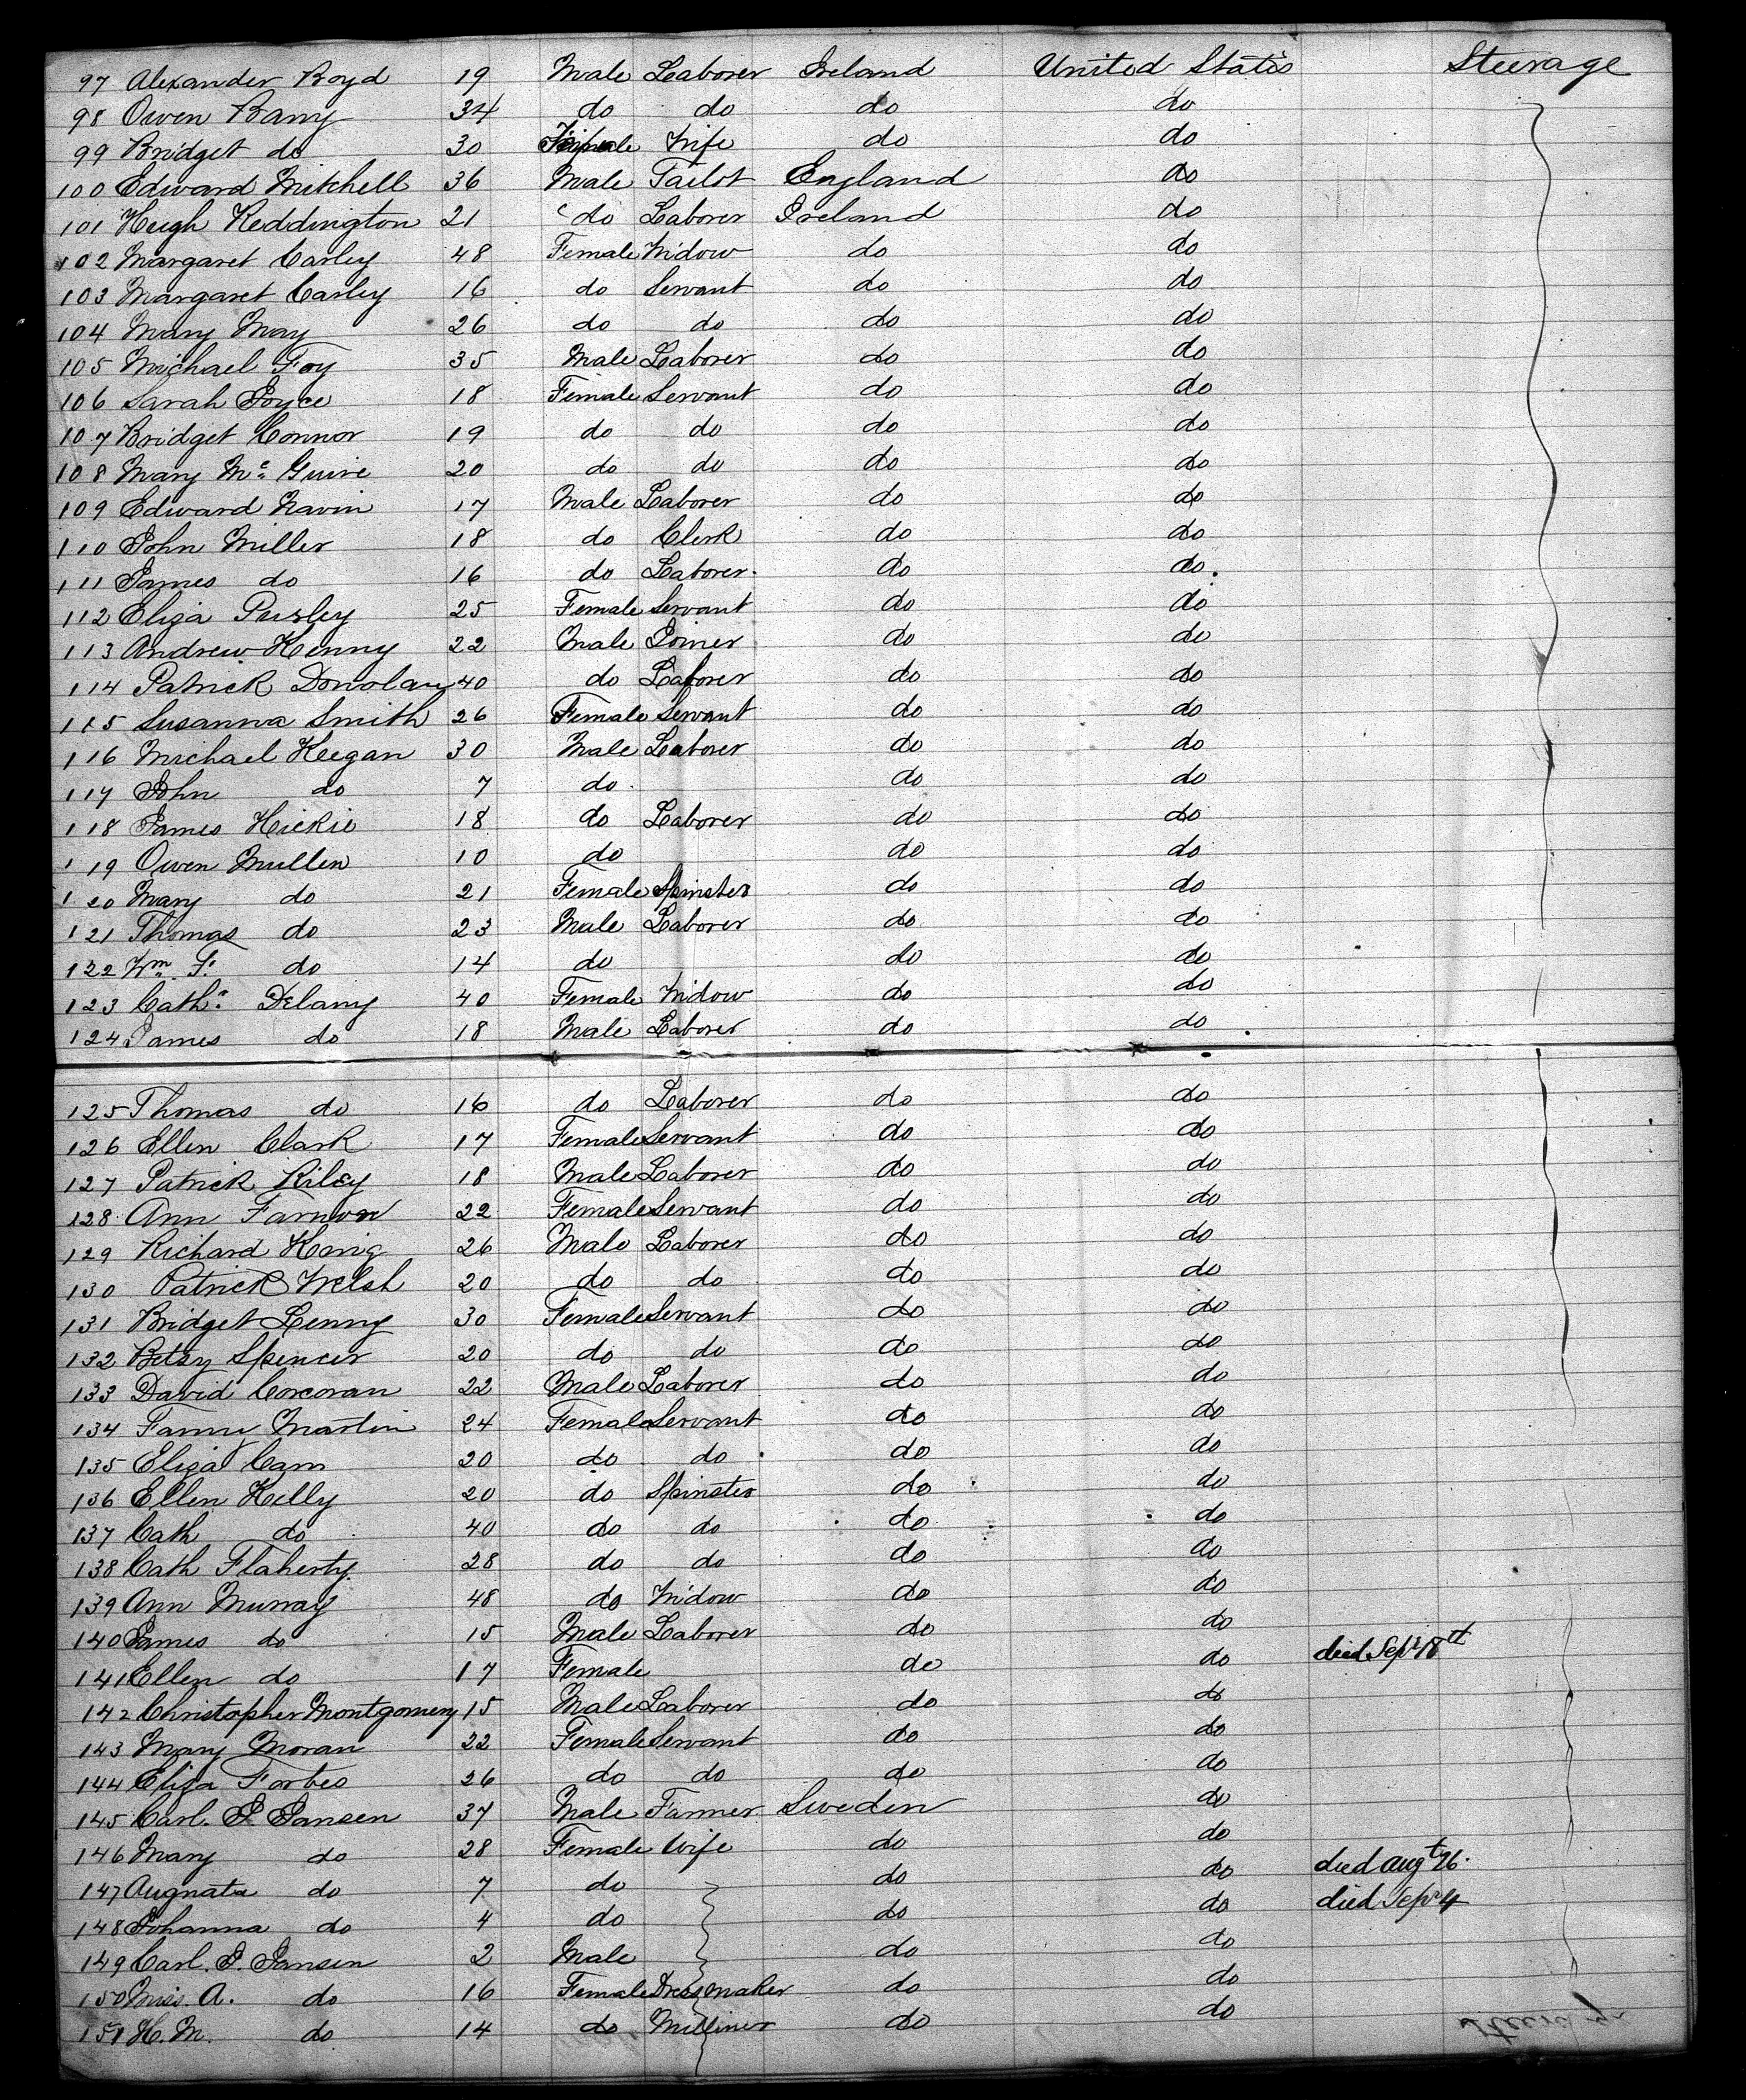 97 Alexander Boyd 19 Male Laborer Ireland United States Steerage
98 Owen Barry 34 do do do do
99 Bridget do 30 Female Wife do do
100 Edward Mitchell 36 Male Tailor England do
101 Hugh Reddington 21 do Laborer Ireland do
102 Margaret Carley 48 Female Widow do do
103 Margaret Carley 16 do Servant do do
104 Mary May 26 do do do do
105 Michael Foy 35 Male Laborer do do
106 Sarah Joyce 18 Female Servant do do
107 Bridget Connor 19 do do do do
108 Mary Mc Guire 20 do do do do
109 Edward Navin 17 Male Laborer do do
110 John Miller 18 do Clerk do do
111 James do 16 do Laborer do do
112 Eliza Pursley 25 Female Servant do do
113 Andrew Kenny 22 Male Joiner do do
114 Patrick Donolan 40 do Laborer do do
115 Susanna Smith 26 Female Servant do do
116 Michael Keegan 30 Male Laborer do do
117 John do 7 do do do
118 James Hickie 18 do Laborer do do
119 Owen Mullen 10 do do do
120 Mary do 21 Female Spinster do do
121 Thomas do 23 Male Laborer do do
122 Wm F. do 14 do do do
123 Cathe Delany 40 Female Widow do do
124 James do 18 Male Laborer do do
125 Thomas do 16 do Laborer do do
126 Ellen Clark 17 Female Servant do do
127 Patrick Riley 18 Male Laborer do do
128 Ann Farnon 22 Female Servant do do
129 Richard Kenig 26 Male Laborer do do
130 Patrick Welsh 20 do do do do
131 Bridget Lenny 30 Female Servant do do
132 Betsy Spencer 20 do do do do
133 David Corcoran 22 Male Laborer do do
134 Fanny Martin 24 Female Servant do do
135 Eliza Cam 20 do do do do
136 Ellen Kelly 20 do Spinster do do
137 Cath do 40 do do do do
138 Cath Flaherty 28 do do do do
139 Ann Murray 48 do Widow do do
140 James do 15 Male Laborer do do
141 Ellen do 17 Female do do died Sept 18th
142 Christopher Montgomery 15 Male Laborer do do
143 Mary Moran 22 Female Servant do do
144 Eliza Forbes 26 do do do do
145 Carl. P. Jansen 37 Male Farmer Sweden do
146 Mary do 28 Female Wife do do
147 Augnata do 7 do do do died Augt 26.
148 Johanna do 4 do do do died Sept 4
149 Carl. P. Jansen 2 Male do do
150 Miss. A. do 16 Female Dressmaker do do
151 H. M. do 14 do Milliner do do